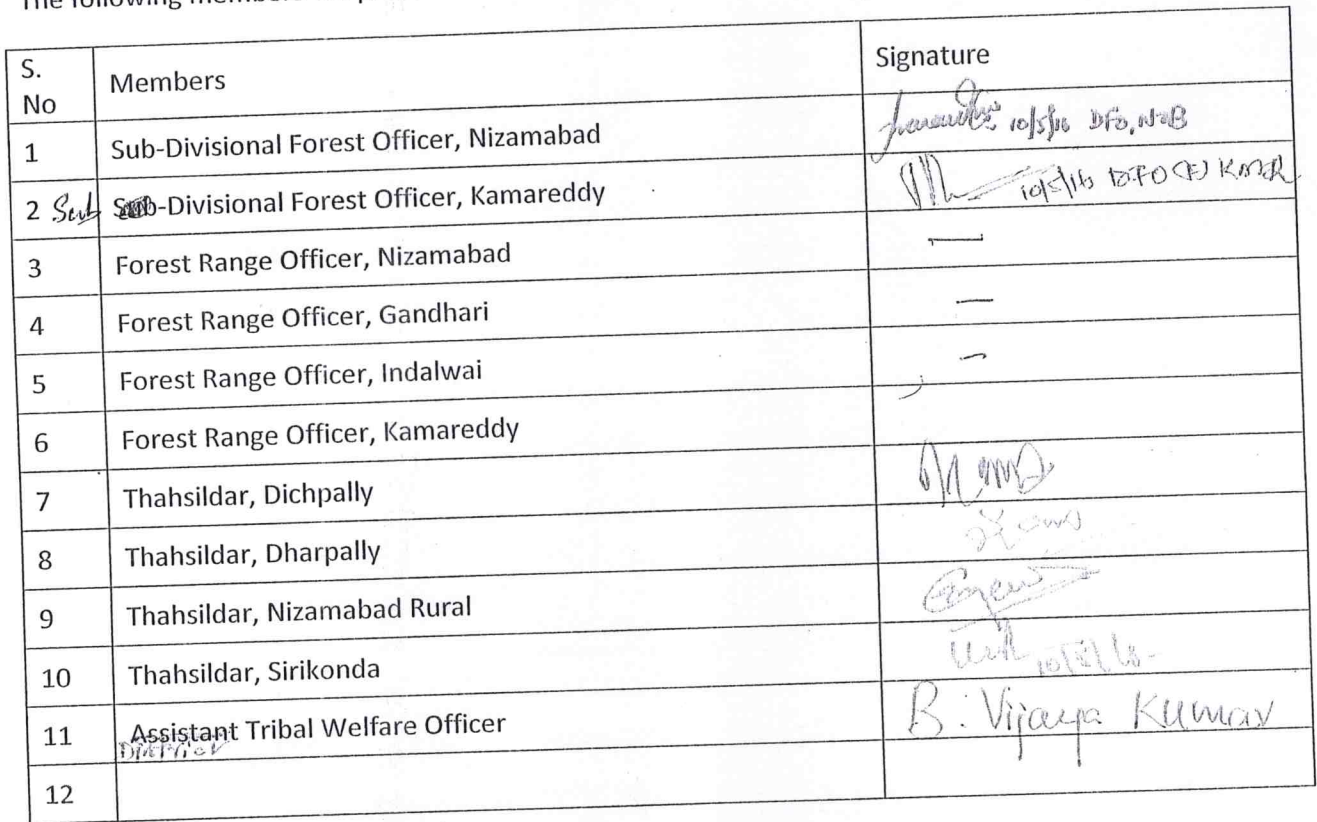 The following members
S. No Members Signature
1 Sub-Divisional Forest Officer, Nizamabad 10/5/16 DFO, NZB
2 Sub -Divisional Forest Officer, Kamareddy 10/5/16 DFO (F) KMR
3 Forest Range Officer, Nizamabad —
4 Forest Range Officer, Gandhari —
5 Forest Range Officer, Indalwai —
6 Forest Range Officer, Kamareddy
7 Thahsildar, Dichpally
8 Thahsildar, Dharpally
9 Thahsildar, Nizamabad Rural
10 Thahsildar, Sirikonda
11 Assistant Tribal Welfare Officer B. Vijaya Kumar
District
12